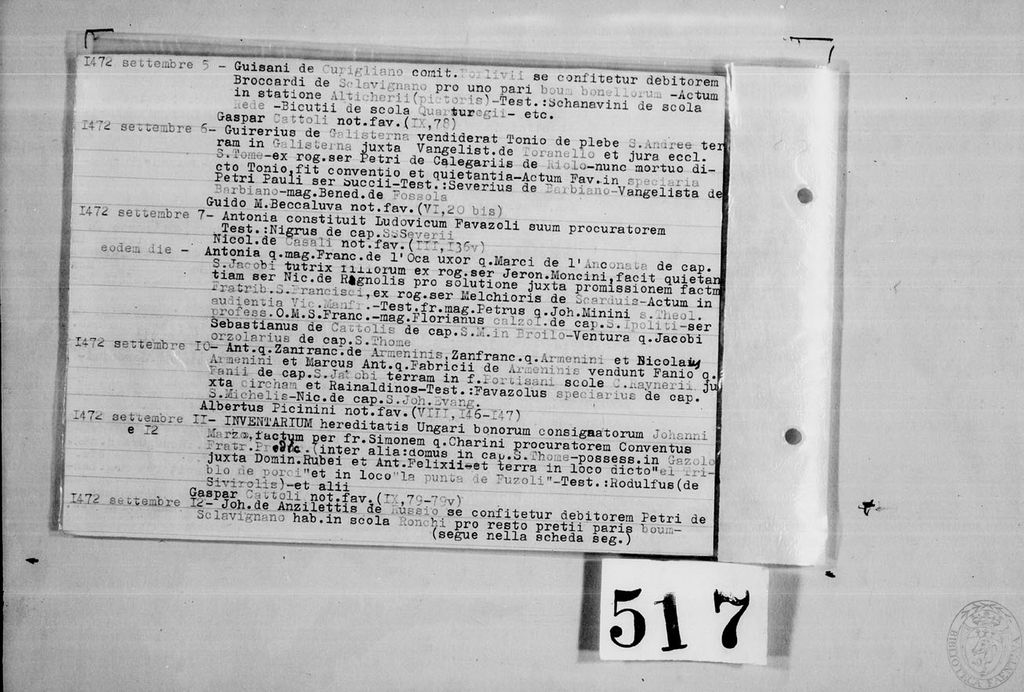 1472 settembre 5 - Guisani de Cupigliano comit.Forlivii se confitetur debitorem
Broccardi de Sclavignano pro uno pari boum bonellorum -Actum
in statione Alticherii(pictoris)-Test.:Schanavini de scola
Rede -Bicutii de scola Quarturegii- etc.
Gaspar Cattoli not.fav.(IX,78)
1472 settembre 6- Guirerius de Galisterna vendiderat Tonio de plebe S.Andree ter
ram in Galisterna juxta Vangelist.de Toranello et jura eccl.
S.Tome-ex rog.ser Petri de Calegariis de Riolo-nunc mortuo di-
cto Tonio,fit conventio et quietantia-Actum Fav.in speciaria
Petri Pauli ser Succii-Test.:Severius de Barbiano-Vangelista de
Barbiano-mag.Bened.de Fossola
Guido M.Beccaluva not.fav.(VI,20 bis)
1472 settembre 7- Antonia constituit Ludovicum Favazoli suum procuratorem
Test.:Nigrus de cap.SsSeverii
Nicol.de Casali not.fav.(III,136v)
eodem die - Antonia q.mag.Franc.de l'Oca uxor q.Marci de l'Anconata de cap.
S.Jacobi tutrix filiorum ex rog.ser Jeron.Moncini,facit quietan
tiam ser Nic.de Ragnolis pro solutione juxta promissionem factm
Fratrib.S.Francisci,ex rog.ser Melchioris de Scarduis-Actum in
audientia Vic.Manfr:-Test.fr.mag.Petrus q.Joh.Minini s.Theol.
profess.O.M.S.Franc.-mag.Florianus calzol.de cap.S.Ipoliti-ser
Sebastianus de Cattolis de cap.S.M.in Broilo-Ventura q.Jacobi
orzolarius de cap.S.Thome
1472 settembre 10- Ant.q.Zanfranc.de Armeninis,Zanfranc.q.Armenini et Nicolaus
Armenini et Marcus Ant.q.Fabricii de Armeninis vendunt Fanio q.
Fanii de cap.S.Jacobi terram in f.Fortisani scole C.Raynerii ju
xta circham et Rainaldinos-Test.:Favazolus speciarius de cap.
S.Michelis-Nic.de cap.S.Joh.Evang.
Albertus Picinini not.fav.(VIII,146-147)
1472 settembre 11- INVENTARIUM hereditatis Ungari bonorum consignatorum Johanni
e 12 Marzo,factum per fr.Simonem q.Charini procuratorem Conventus
Fratr.Predic.(inter alia:domus in cap.S.Thome-possess.in Gazolo
juxta Domin.Rubei et Ant.Felixii-et terra in loco dicto"el Tri-
blo de porci"et in loco"la punta de Fuzoli"-Test.:Rodulfus(de
Sivirolis)-et alii
Gaspar Cattoli not.fav.(IX,79-79v)
1472 settembre 12- Joh.de Anzilettis de Russio se confitetur debitorem Petri de
Sclavignano hab.in scola Ronchi pro resto pretii paris boum-
(segue nella scheda seg.)
517
BIBLIOTECA FAENTINA